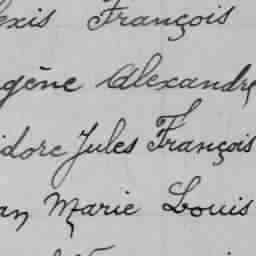 exis François
gène Alexandre
idore Jules François
an Marie Louis